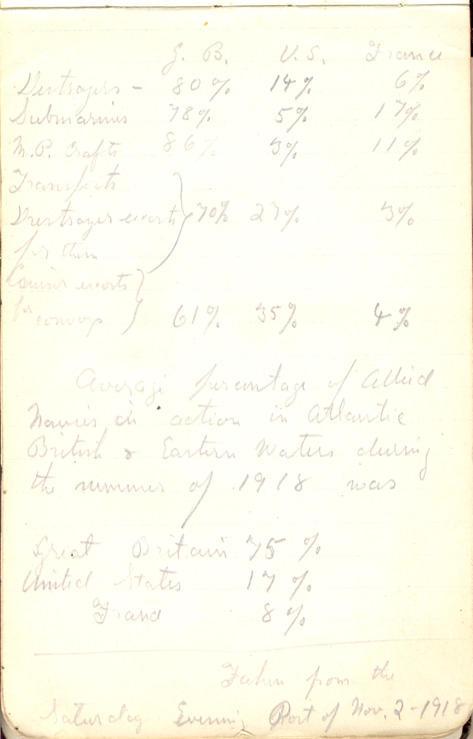 G. B. U.S. France
Destroyers - 80% 14% 6%
Submarines 78% 5% 17%
M.P. Crafts 86% 3% 11%
Transports
Destroyer escorts 70% 27% 3%
for them
Cruiser escorts
for convoys 61% 35% 4%
Average percentage of Allied
Navies in action in Atlantic
British & Eastern Waters during
the summer of 1918 was
Great Britain 75%
United States 17%
France 8%
Taken from the
Saturday Evening Post of Nov. 2-1918